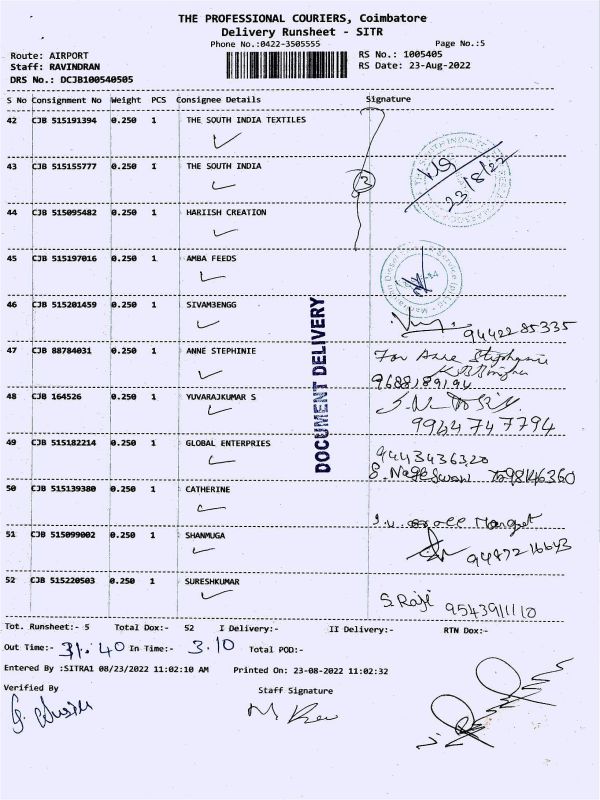 THE PROFESSIONAL COURIERS, Coimbatore
Delivery Runsheet - SITR
Phone No.:0422-3505555
Page No.:5
Route: AIRPORT
RS No.: 1005405
Staff: RAVINDRAN
RS Date: 23-Aug-2022
DRS No.: DCJB100540505
S No Consignment No Weight PCS Consignee Details Signature
42 CJB 515191394 0.250 1 THE SOUTH INDIA TEXTILES
43 CJB 515155777 0.250 1 THE SOUTH INDIA
3
23/8/22
44 CJB 515095482 0.250 1 HARIISH CREATION
45 CJB 515197016 0.250 1 AMBA FEEDS
46 CJB 515201459 0.250 1 SIVAM3ENGG
9442285335
47 CJB 88784031 0.250 1 ANNE STEPHINIE
For Anne Stephanie
9688189194
48 CJB 164526 0.250 1 YUVARAJKUMAR S
9944747794
49 CJB 515182214 0.250 1 GLOBAL ENTERPRIES
9443436320
S. Nageswari
50 CJB 515139380 0.250 1 CATHERINE
51 CJB 515099002 0.250 1 SHANMUGA
9447216643
52 CJB 515220503 0.250 1 SURESHKUMAR
S. Raji 9543911110
DOCUMENT DELIVERY
Tot. Runsheet:- 5 Total Dox:- 52 I Delivery:- II Delivery:- RTN Dox:-
Out Time:- 31.40 In Time:- 3.10 Total POD:-
Entered By :SITRA1 08/23/2022 11:02:10 AM Printed On: 23-08-2022 11:02:32
Verified By
Staff Signature